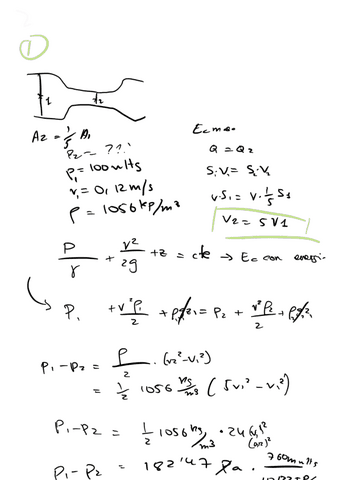 1
1
2
A2 = 1/5 A1
P2 = ???
P1 = 100 mmHg
v1 = 0,12 m/s
ρ = 1056 kg/m³
Q1 = Q2
S1·V1 = S2·V2
V·S1 = V·1/5 S1
V2 = 5V1
P/γ + v²/2g + z = cte → Ec con energi
P1 + v²ρ1/2 + ρgz1 = P2 + v²ρ2/2 + ρgz1
P1-P2 = ρ/2 · (v2² - v1²)
= 1/2 1056 kg/m³ (5v1² - v1²)
P1-P2 = 1/2 1056 kg/m³ · 24
P1-P2 = 182'47 Pa · 760mmHg